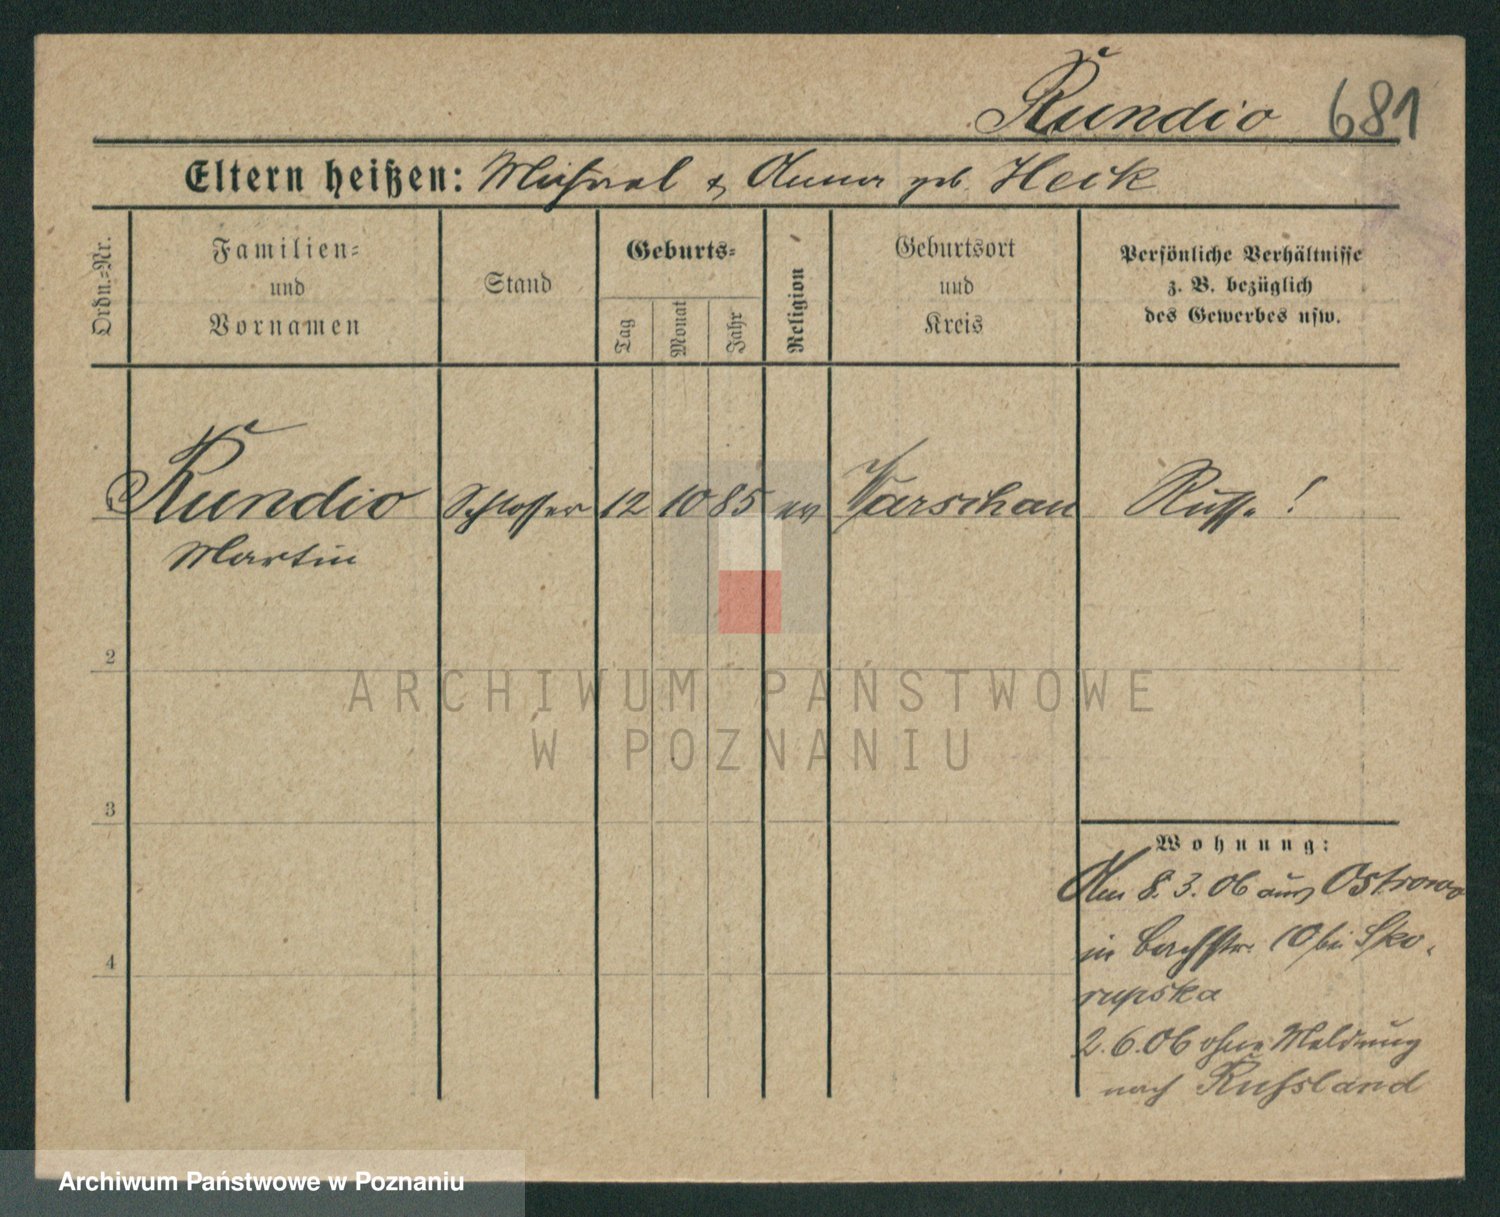 Rundio 681
Eltern heißen: Michael & Anna geb. Heck
Ordn.-Nr.
Familien-
und
Vornamen
Stand
Geburts-
Tag
Monat
Jahr
Religion
Geburtsort
und
Kreis
Persönliche Verhältnisse
z. B. bezüglich
des Gewerbes usw.
1 Rundio Schlosser 12 10 85 ev Warschau Russe!
Martin
2
3
4
Wohnung:
Am 8.3.06 aus Ostrowo
in Bachstr. 10 bei Sko-
rupska
2.6.06 ohne Meldung
nach Rußland
ARCHIWUM PAŃSTWOWE
W POZNANIU
Archiwum Państwowe w Poznaniu